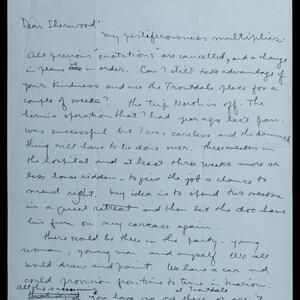 Dear Sherwood
My pestiferousness multiplies.
All previous "quotations" are cancelled, and a change
in plans is in order. Can I still take advantage of
your kindness and use the Troutdale place for a
couple of weeks? The trip North is off. The
hernia operation that I had year ago last Jan.
was successful but I was careless and the damned
thing will have to be done over. three weeks in
the hospital and at least three weeks more or
less house ridden - to give the job a chance to
mend right. My idea is to spend two weeks
in a quiet retreat and then let the doc have
his fun on my carcase again.
There would be three in the party - young
woman, young man and myself. We all
would draw and paint. We have a car and
could provision from time to time in Marion.
All this is assuming at Troutdale
you have no one there or